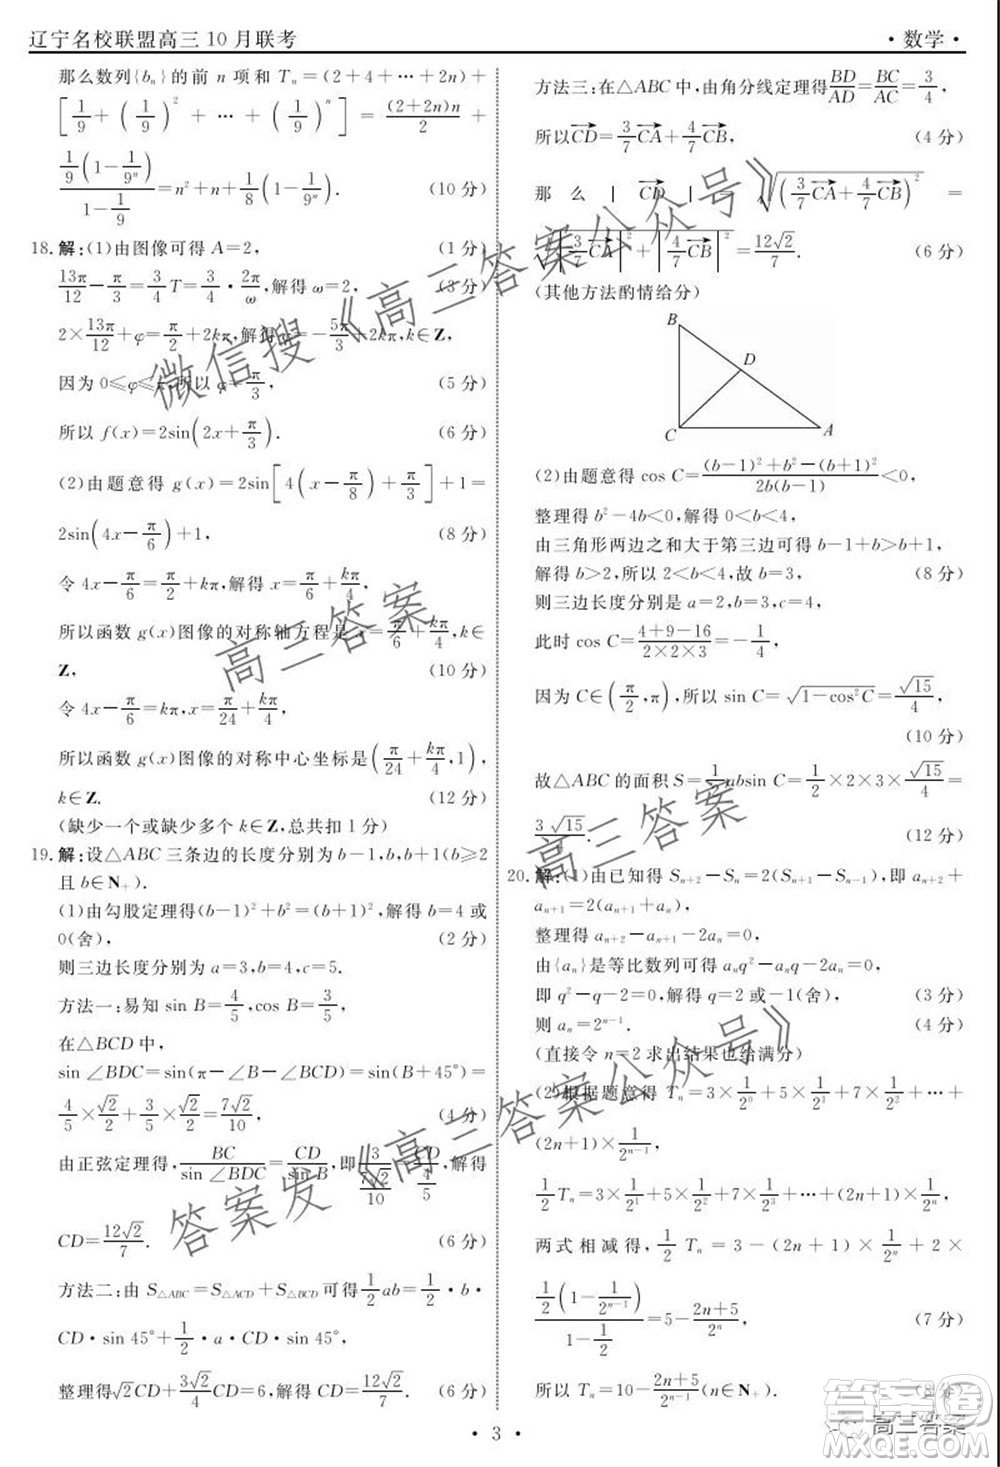 辽宁名校联盟高三10月联考
·数学·
那么数列{bₙ}的前 n 项和 Tₙ=(2+4+…+2n)+
[1/9+(1/9)²+…+(1/9)ⁿ]=(2+2n)n/2+
1/9(1-1/9ⁿ)/(1-1/9)=n²+n+1/8(1-1/9ⁿ). (10 分)
18.解:(1)由图像可得 A=2, (1 分)
13π/12-π/3=3/4T=3/4·2π/ω,解得 ω=2, (3 分)
2×13π/12+φ=π/2+2kπ,解得 φ=-5π/3+2kπ,k∈Z,
因为 0≤φ≤π,所以 φ=π/3, (5 分)
所以 f(x)=2sin(2x+π/3). (6 分)
(2)由题意得 g(x)=2sin[4(x-π/8)+π/3]+1=
2sin(4x-π/6)+1, (8 分)
令 4x-π/6=π/2+kπ,解得 x=π/6+kπ/4,
所以函数 g(x)图像的对称轴方程是 x=π/6+kπ/4,k∈
Z, (10 分)
令 4x-π/6=kπ,x=π/24+kπ/4,
所以函数 g(x)图像的对称中心坐标是(π/24+kπ/4,1),
k∈Z. (12 分)
(缺少一个或缺少多个 k∈Z,总共扣 1 分)
19.解:设△ABC 三条边的长度分别为 b-1,b,b+1(b≥2
且 b∈N₊).
(1)由勾股定理得(b-1)²+b²=(b+1)²,解得 b=4 或
0(舍), (2 分)
则三边长度分别为 a=3,b=4,c=5.
方法一:易知 sin B=4/5,cos B=3/5,
在△BCD 中,
sin ∠BDC=sin(π-∠BDC)=sin(B+45°)=
4/5×√2/2+3/5×√2/2=7√2/10, (4 分)
由正弦定理得,BC/sin ∠BDC=CD/sin B,即 3/(7√2/10)=CD/(4/5),解得
CD=12√2/7. (6 分)
方法二:由 S△ABC=S△ACD+S△BCD可得1/2ab=1/2·b·
CD·sin 45°+1/2·a·CD·sin 45°,
整理得√2CD+3√2/4CD=6,解得 CD=12√2/7. (6 分)
方法三:在△ABC 中,由角分线定理得BD/AD=BC/AC=3/4,
所以CD=3/7CA+4/7CB, (4 分)
那么|CD|=√(3/7CA+4/7CB)²=
√|3/7CA|²+|4/7CB|²=12√2/7. (6 分)
(其他方法酌情给分)
B
D
C
A
(2)由题意得 cos C=((b-1)²+b²-(b+1)²)/2b(b-1)<0,
整理得 b²-4b<0,解得 0<b<4,
由三角形两边之和大于第三边可得 b-1+b>b+1,
解得 b>2,所以 2<b<4,故 b=3, (8 分)
则三边长度分别是 a=2,b=3,c=4,
此时 cos C=(4+9-16)/(2×2×3)=-1/4,
因为 C∈(π/2,π),所以 sin C=√1-cos²C=√15/4,
(10 分)
故△ABC 的面积 S=1/2absin C=1/2×2×3×√15/4=
3√15/4. (12 分)
20.解:(1)由已知得 Sₙ₊₂-Sₙ=2(Sₙ₊₁+Sₙ),即 aₙ₊₂+
aₙ₊₁=2(aₙ₊₁+aₙ),
整理得 aₙ₊₂-aₙ₊₁-2aₙ=0,
由{aₙ}是等比数列可得 aₙq²-aₙq-2aₙ=0,
即 q²-q-2=0,解得 q=2 或-1(舍), (3 分)
则 aₙ=2ⁿ⁻¹. (4 分)
(直接令 n=2 求出结果也给满分)
(2)根据题意得 Tₙ=3×1/2⁰+5×1/2¹+7×1/2²+…+
(2n+1)×1/2ⁿ⁻¹,
1/2Tₙ=3×1/2¹+5×1/2²+7×1/2³+…+(2n+1)×1/2ⁿ,
两式相减得,1/2Tₙ=3-(2n+1)×1/2ⁿ+2×
1/2(1-1/2ⁿ⁻¹)/(1-1/2)=5-(2n+5)/2ⁿ, (7 分)
所以 Tₙ=10-(2n+5)/2ⁿ⁻¹(n∈N₊).
·3·
微信搜《高三答案公众号》
高三答案
高三答案
答案发《高三答案公众号》
高三答案
答案圈
MXQE.COM